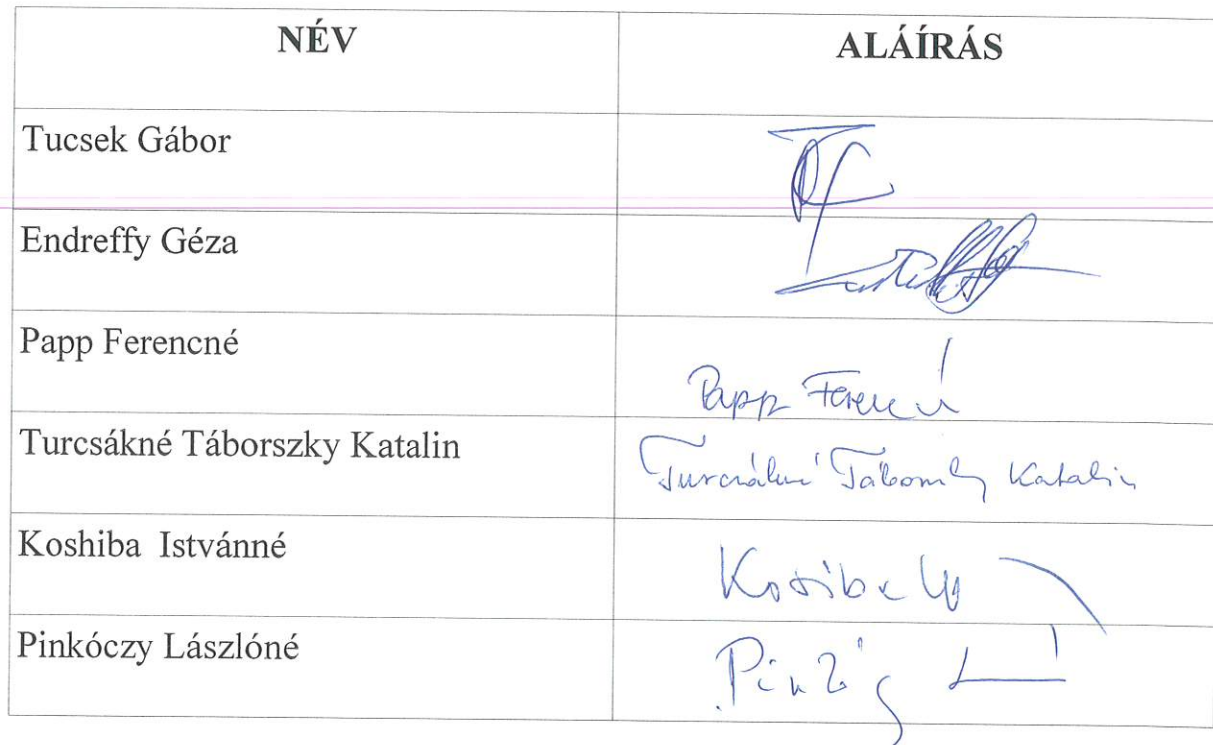 NÉV
ALÁÍRÁS
Tucsek Gábor
Endreffy Géza
Papp Ferencné
Papp Ferencné
Turcsákné Táborszky Katalin
Turcsákné Táborszky Katalin
Koshiba Istvánné
Pinkóczy Lászlóné